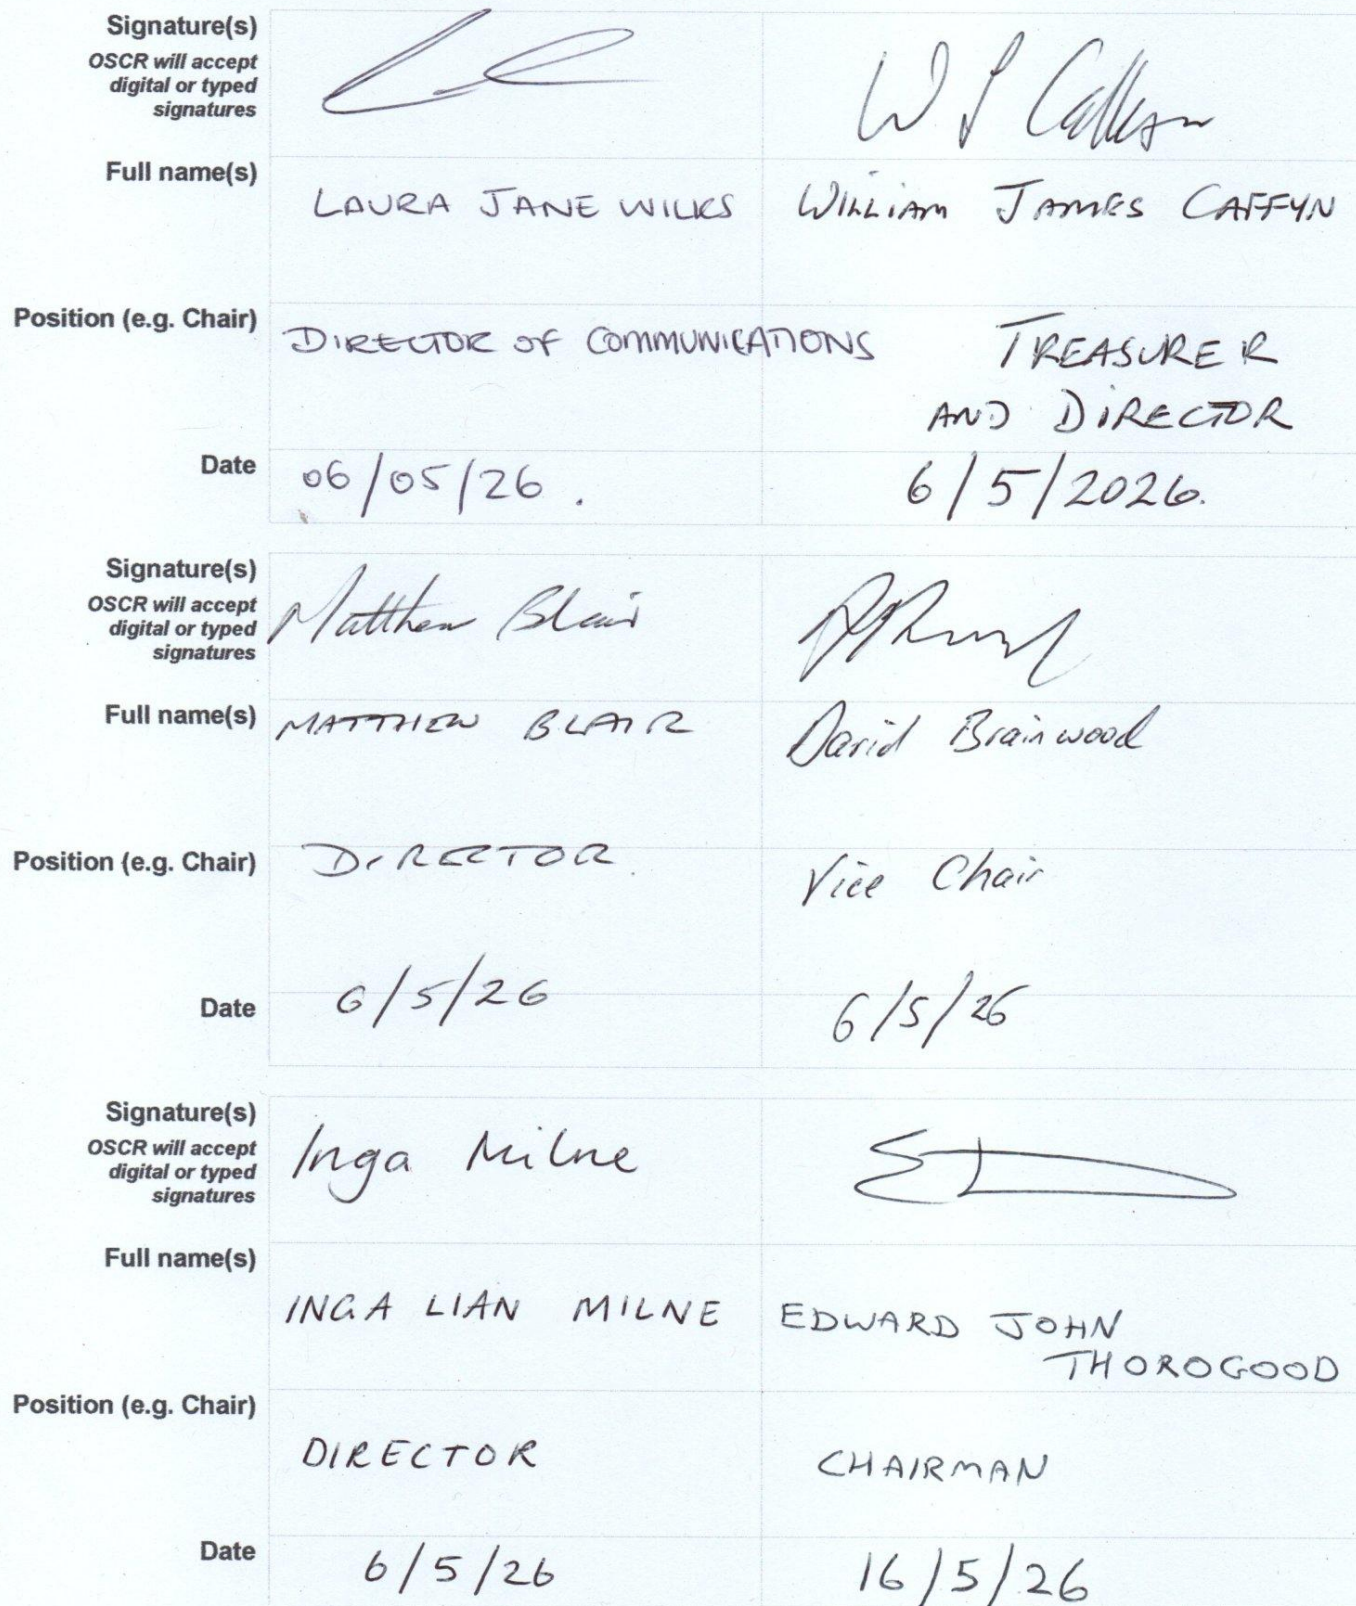 Signature(s)
OSCR will accept
digital or typed
signatures
W J Caffyn
Full name(s)
LAURA JANE WILKS WILLIAM JAMES CAFFYN
Position (e.g. Chair)
DIRECTOR OF COMMUNICATIONS TREASURER
AND DIRECTOR
Date
06/05/26. 6/5/2026.
Signature(s)
OSCR will accept
digital or typed
signatures
Matthew Blair
Full name(s)
MATTHEW BLAIR David Brainwood
Position (e.g. Chair)
DIRECTOR. Vice Chair
Date
6/5/26 6/5/26
Signature(s)
OSCR will accept
digital or typed
signatures
Inga Milne
Full name(s)
INGA LIAN MILNE EDWARD JOHN
THOROGOOD
Position (e.g. Chair)
DIRECTOR CHAIRMAN
Date
6/5/26 16/5/26